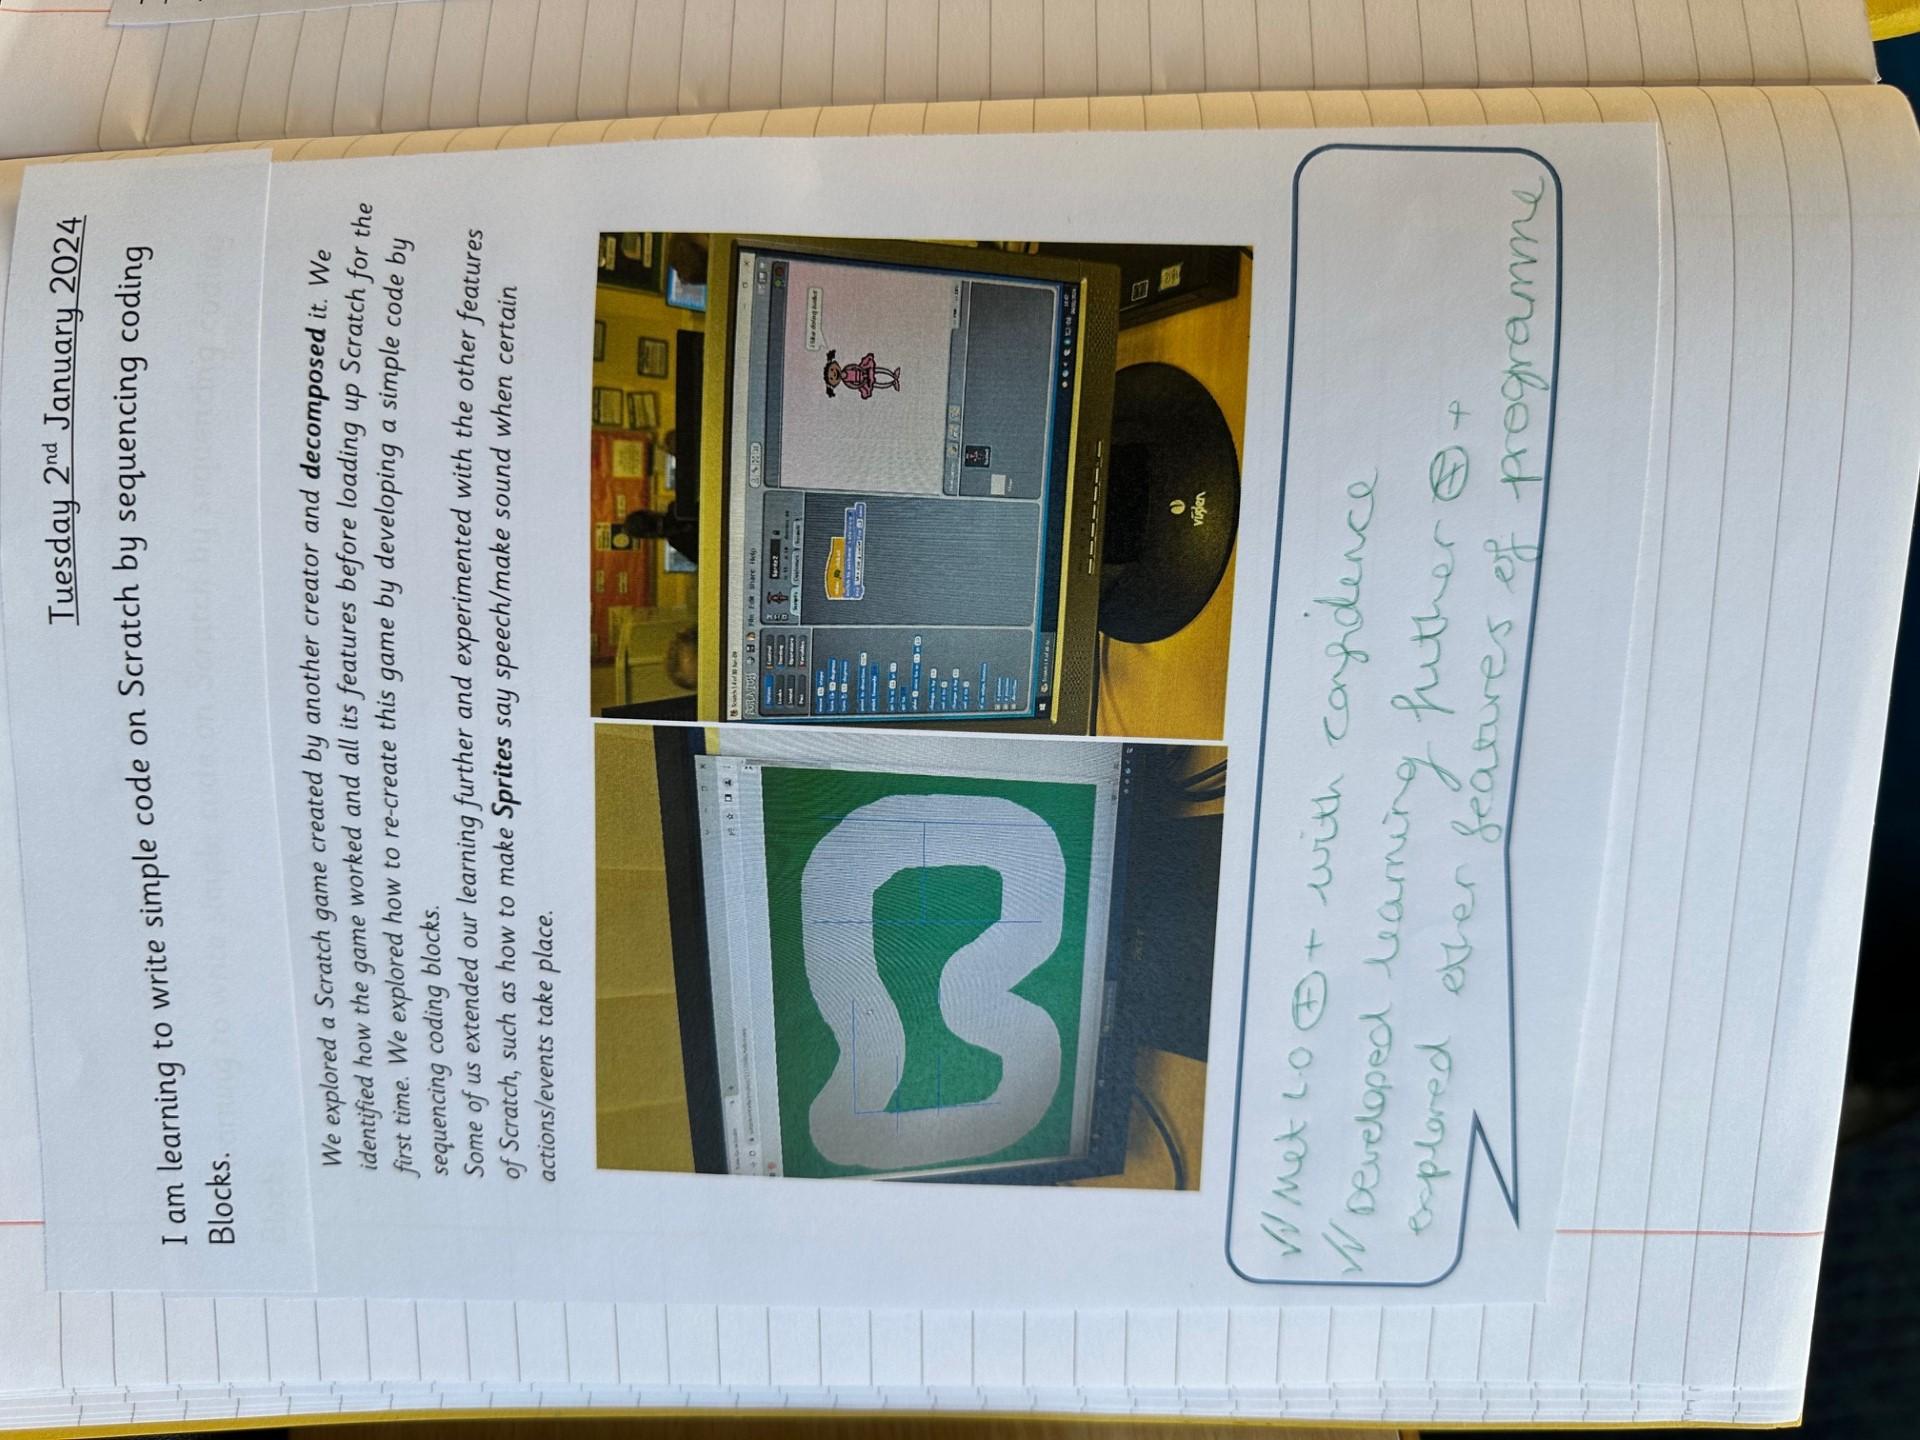 Tuesday 2nd January 2024
I am learning to write simple code on Scratch by sequencing coding
Blocks.
We explored a Scratch game created by another creator and decomposed it. We
identified how the game worked and all its features before loading up Scratch for the
first time. We explored how to re-create this game by developing a simple code by
sequencing coding blocks.
Some of us extended our learning further and experimented with the other features
of Scratch, such as how to make Sprites say speech/make sound when certain
actions/events take place.
File Edit Share Help
I like doing ballet
viglen
✓✓ Met L.O (+) + with confidence
✓✓ Developed learning further (+) +
explored other features of programme